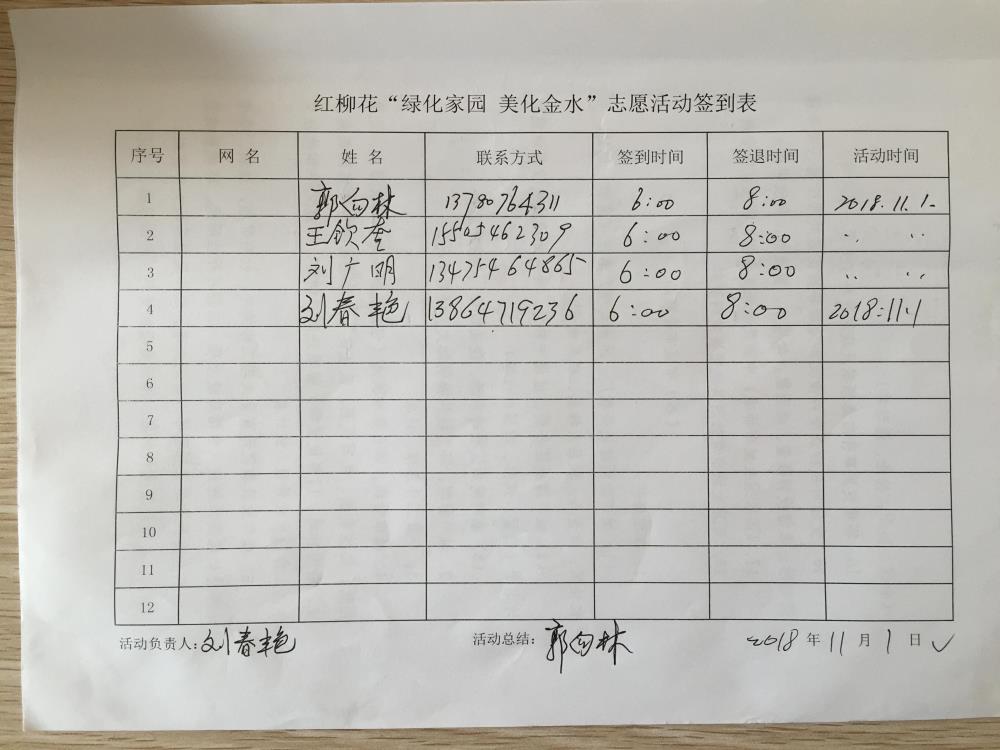 红柳花“绿化家园 美化金水”志愿活动签到表
序号 网名 姓名 联系方式 签到时间 签退时间 活动时间
1 郭向林 13780764311 6:00 8:00 2018.11.1.
2 王钦 15505462309 6:00 8:00 〃 〃
3 刘广明 13475464865 6:00 8:00 〃 〃
4 刘春艳 13864719236 6:00 8:00 2018:11.1
5
6
7
8
9
10
11
12
活动负责人:刘春艳 活动总结:郭向林 2018年11月1日✓